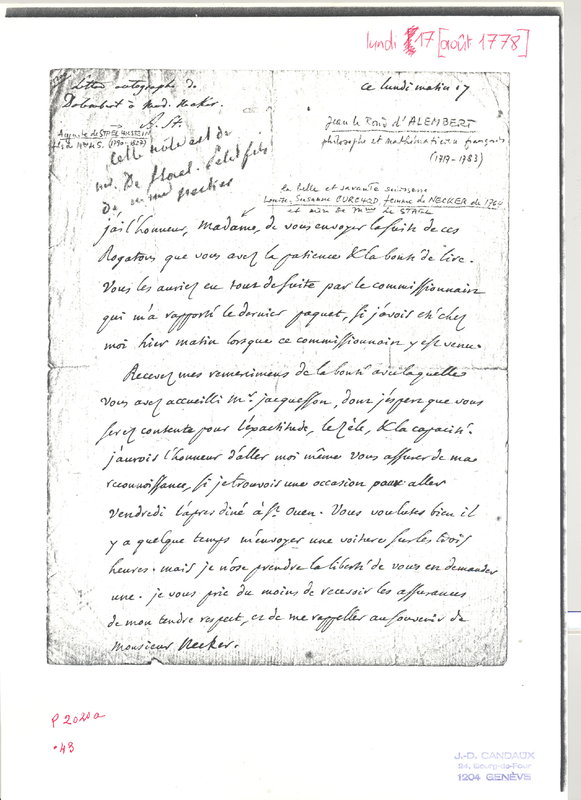 lundi 17 [août 1778]
Lettre autographe de
Dalembert à Mad. Neker.
A. St.
ce lundi matin 17
Auguste de STAEL-HOLSTEIN
fils de Mme de S. (1790-1827)
Jean le Rond d'ALEMBERT
philosophe et mathématicien français
(1717-1783)
Cette note est de
mr. De Stael. Petit fils
de
la belle et savante suissesse
Louise-Susanne CURCHOD, femme de NECKER de 1764
et mère de Mme de STAEL
j'ai l'honneur, madame, de vous envoyer la suite de ces
Rogatons que vous avez la patience & la bonté de lire.
Vous les auriez eu tout de suite par le commissionnaire
qui m'a rapporté le dernier paquet, si j'avois eté chez
moi hier matin lorsque ce commissionnaire y est venu.
Recevez mes remercimens de la bonté avec laquelle
vous avez accueilli Mr. jacquesson, dont j'espere que vous
serez contente pour l'exactitude, le zèle, & la capacité.
j'aurois l'honneur d'aller moi même vous assurer de ma
reconnoissance, si je trouvois une occasion pour aller
vendredi l'après diné à St. Ouen. Vous voulutes bien il
y a quelque temps m'envoyer une voiture sur les trois
heures. mais je n'ose prendre la liberté de vous en demander
une. je vous prie du moins de recevoir les assurances
de mon tendre respect, et de me rappeller au souvenir de
monsieur Necker.
P 2020a
.43
J.-D. CANDAUX
24, Bourg-de-Four
1204 GENÈVE